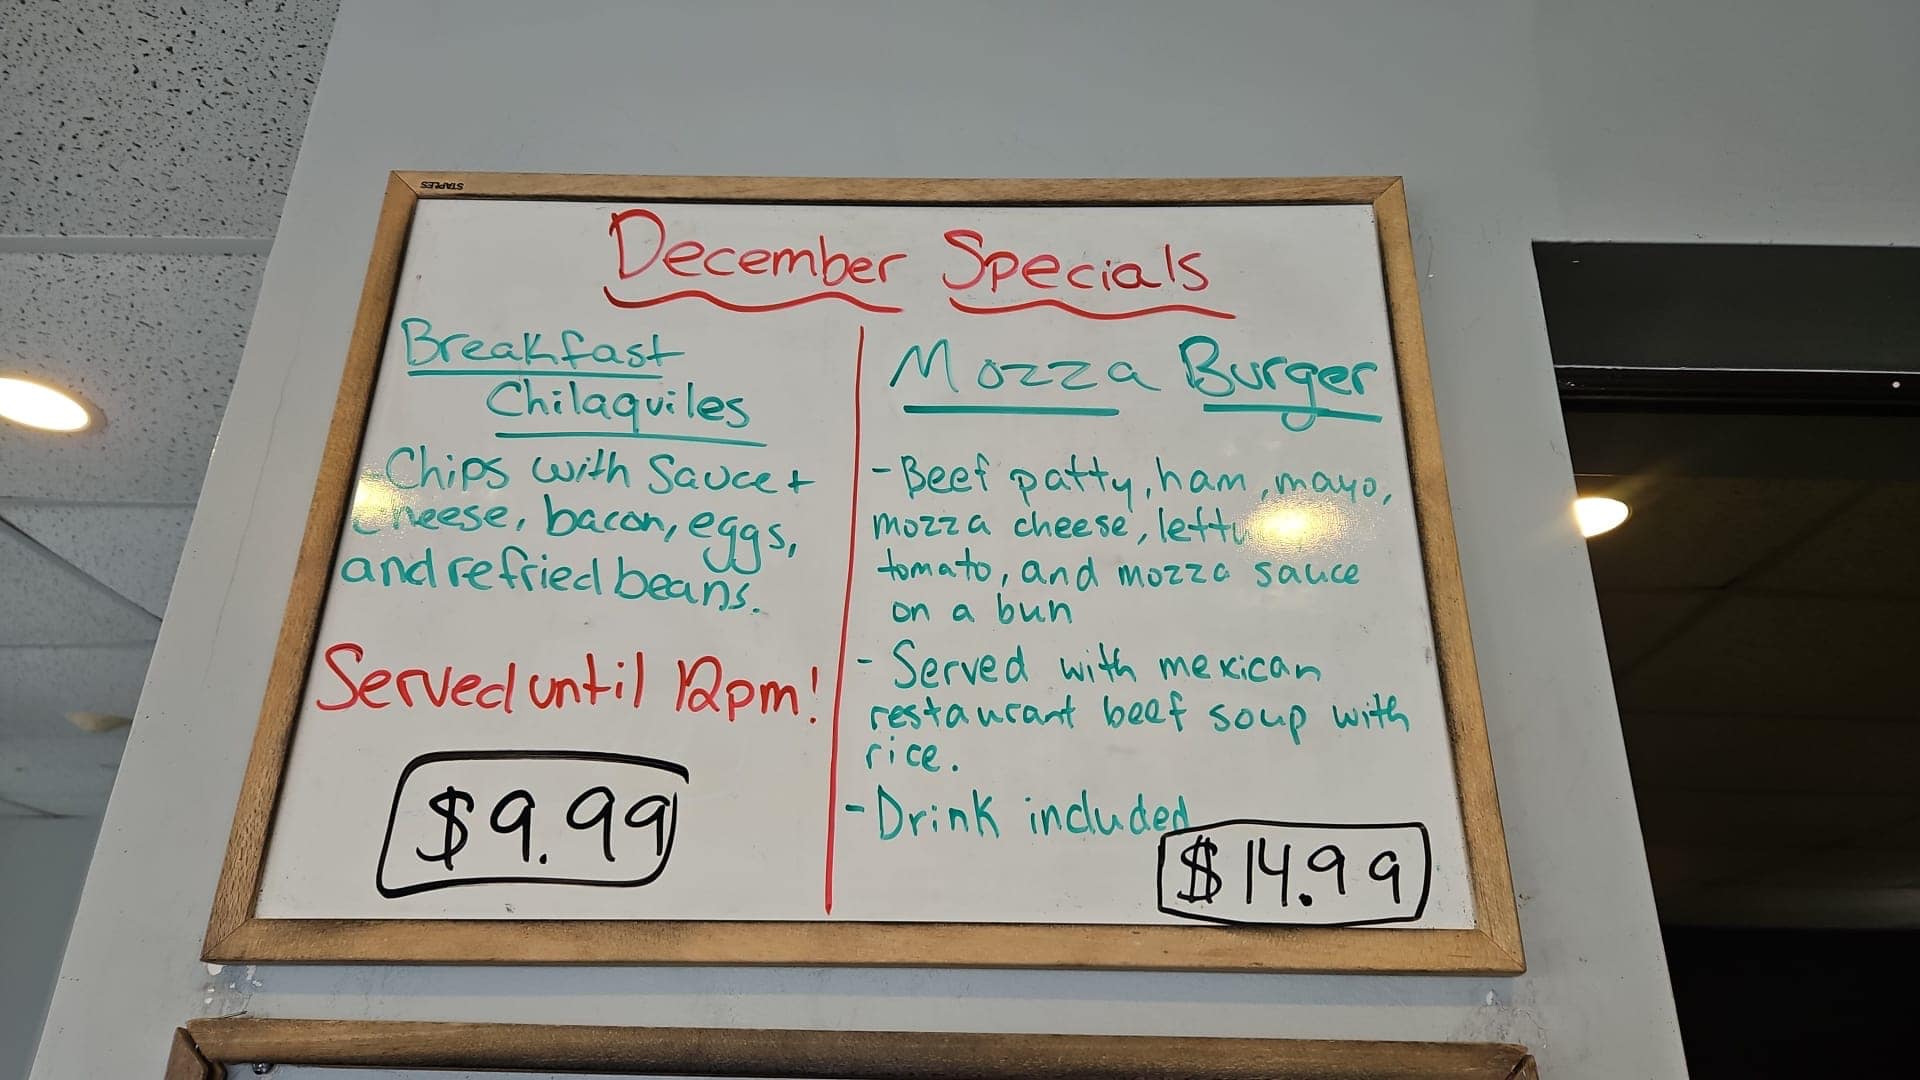 STAPLES
December Specials
Breakfast
Chilaquiles
-Chips with Sauce +
cheese, bacon, eggs,
and refried beans.
Served until 12pm!
$9.99
Mozza Burger
-Beef patty, ham, mayo,
mozza cheese,
tomato, and mozza sauce
on a bun
- Served with mexican
restaurant beef soup with
rice.
-Drink included
$14.99